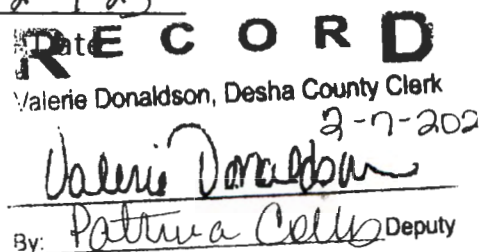 Date
RECORD
Valerie Donaldson, Desha County Clerk
2-7-202
Valerie Donaldson
By: Deputy